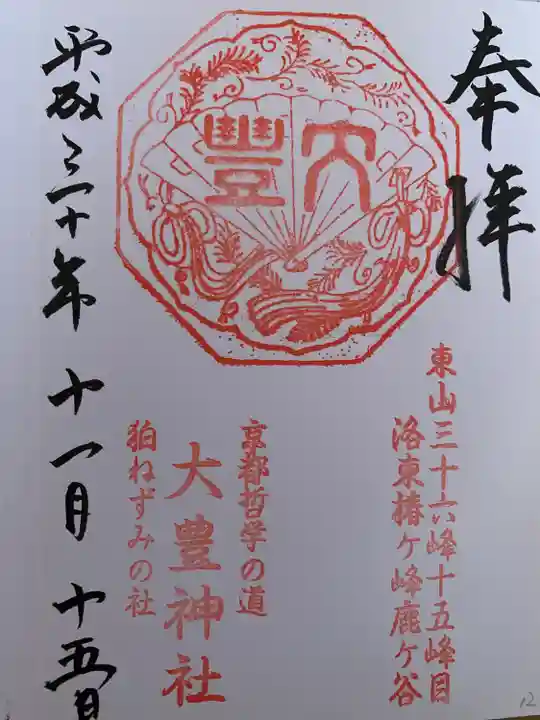 奉拝
東山三十六峰十五峰目
洛東椿ヶ峰鹿ケ谷
大豐
京都哲学の道
大豊神社
狛ねずみの社
平成三十年十一月十五日
12